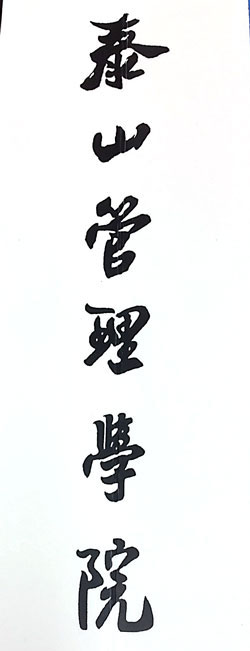 泰山管理學院